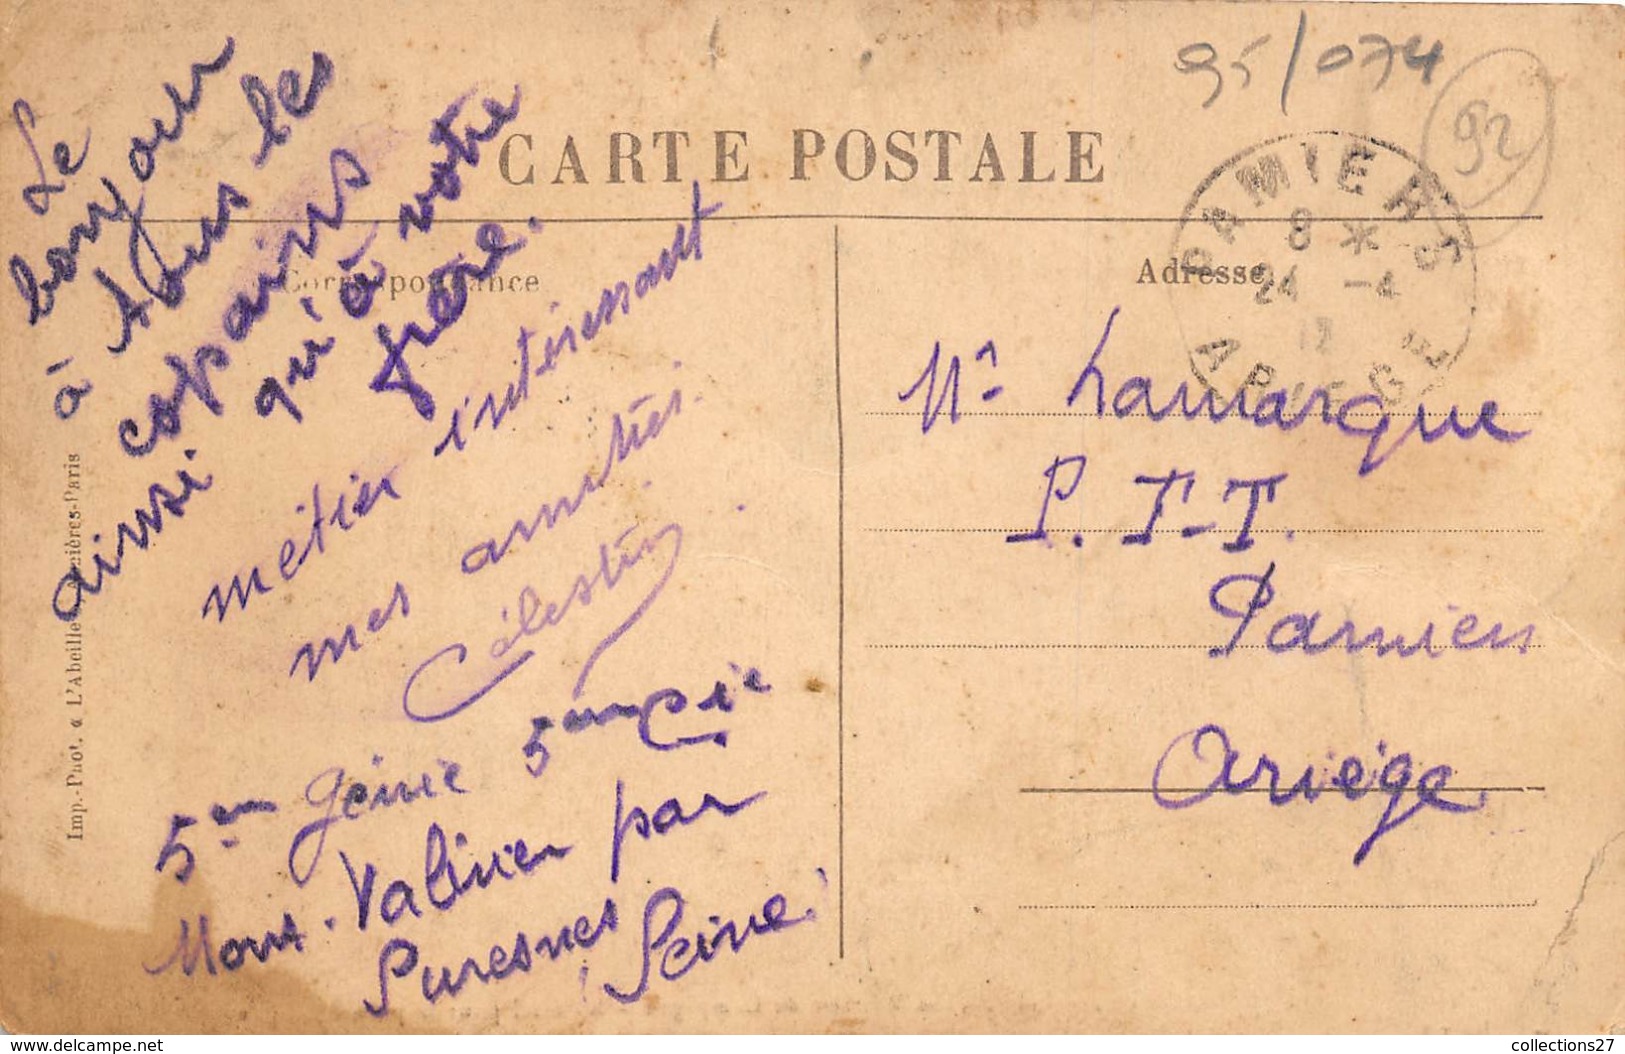 95/074
92
CARTE POSTALE
Correspondance
Adresse
PAMIERS
8 *
24 -4
12
ARIEGE
Le
bonjour
à tous les
copains
ainsi qu'à votre
frère.
métier intéressant
mes amitiés.
Célestin
5em Génie 5em Cie
Mont-Valérien par
Suresnes
Seine.
Mr Lamarque
P.T.T.
Pamiers
Ariège
Imp.-Phot. « L'Abeille
nières-Paris
www.delcampe.net
collections27